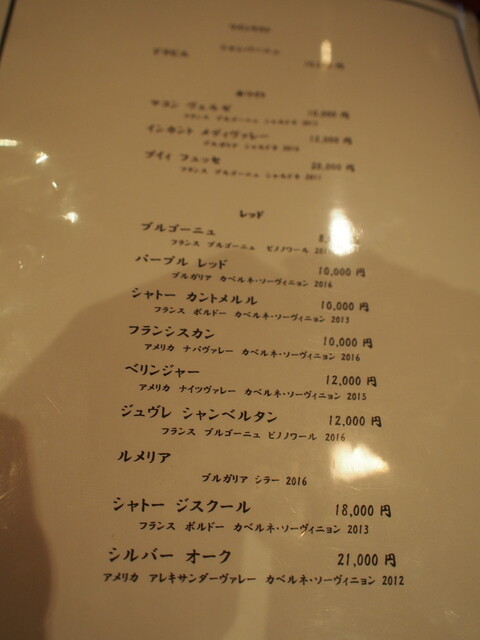 シャンパーニュ
ドラピエ
ホワイト
マコン ヴェルゼ 円
フランス ブルゴーニュ シャルドネ
インカント メディヴァレー 12,000 円
ブルガリア シャルドネ 2016
プイィ フュッセ 20,000 円
フランス ブルゴーニュ シャルドネ
レッド
ブルゴーニュ
フランス ブルゴーニュ ピノノワール
パープル レッド 10,000 円
ブルガリア カベルネ・ソーヴィニョン 2016
シャトー カントメルル 10,000 円
フランス ボルドー カベルネ・ソーヴィニョン 2013
フランシスカン 10,000 円
アメリカ ナパヴァレー カベルネ・ソーヴィニョン 2016
ベリンジャー 12,000 円
アメリカ ナイツヴァレー カベルネ・ソーヴィニョン 2015
ジュヴレ シャンベルタン 12,000 円
フランス ブルゴーニュ ピノノワール 2016
ルメリア
ブルガリア シラー 2016
シャトー ジスクール 18,000 円
フランス ボルドー カベルネ・ソーヴィニョン 2013
シルバー オーク 21,000 円
アメリカ アレキサンダーヴァレー カベルネ・ソーヴィニョン 2012